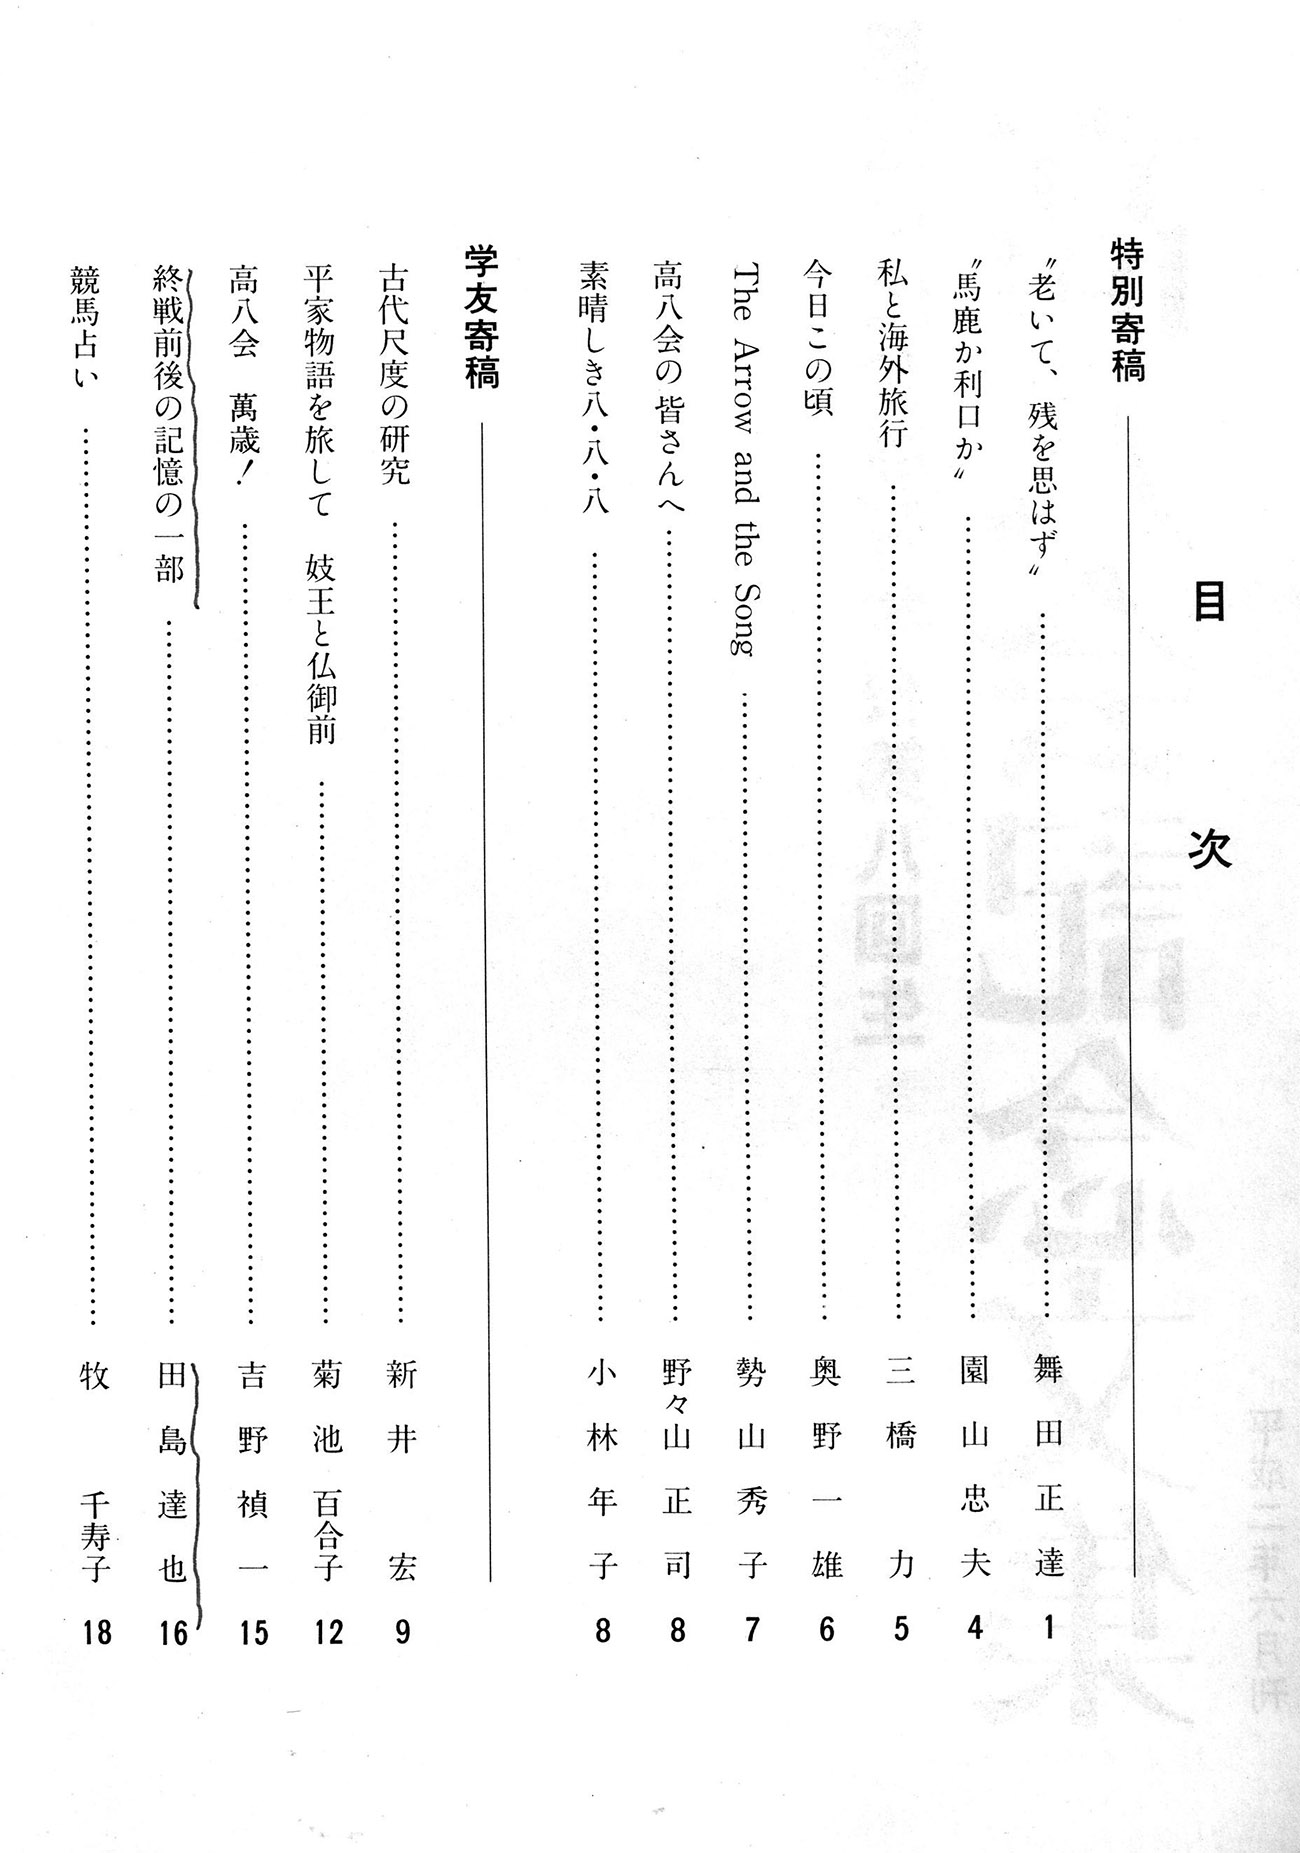 目次
特別寄稿
〝老いて、残を思はず〟 舞田正達 1
〝馬鹿か利口か〟 園山忠夫 4
私と海外旅行 三橋力 5
今日この頃 奥野一雄 6
The Arrow and the Song 勢山秀子 7
高八会の皆さんへ 野々山正司 8
素晴しき八・八・八 小林年子 8
学友寄稿
古代尺度の研究 新井宏 9
平家物語を旅して 妓王と仏御前 菊池百合子 12
高八会 萬歳! 吉野禎一 15
終戦前後の記憶の一部 田島達也 16
競馬占い 牧千寿子 18